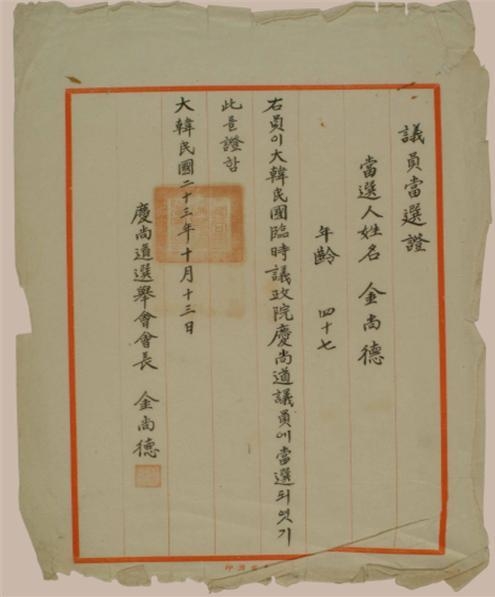 議員當選證
當選人姓名 金尚德
年齡 四十七
右員이大韓民國臨時議政院慶尚道議員에當選되엿기
此를證함
大韓民國二十三年十月十三日
慶尚道選舉會會長 金尚德